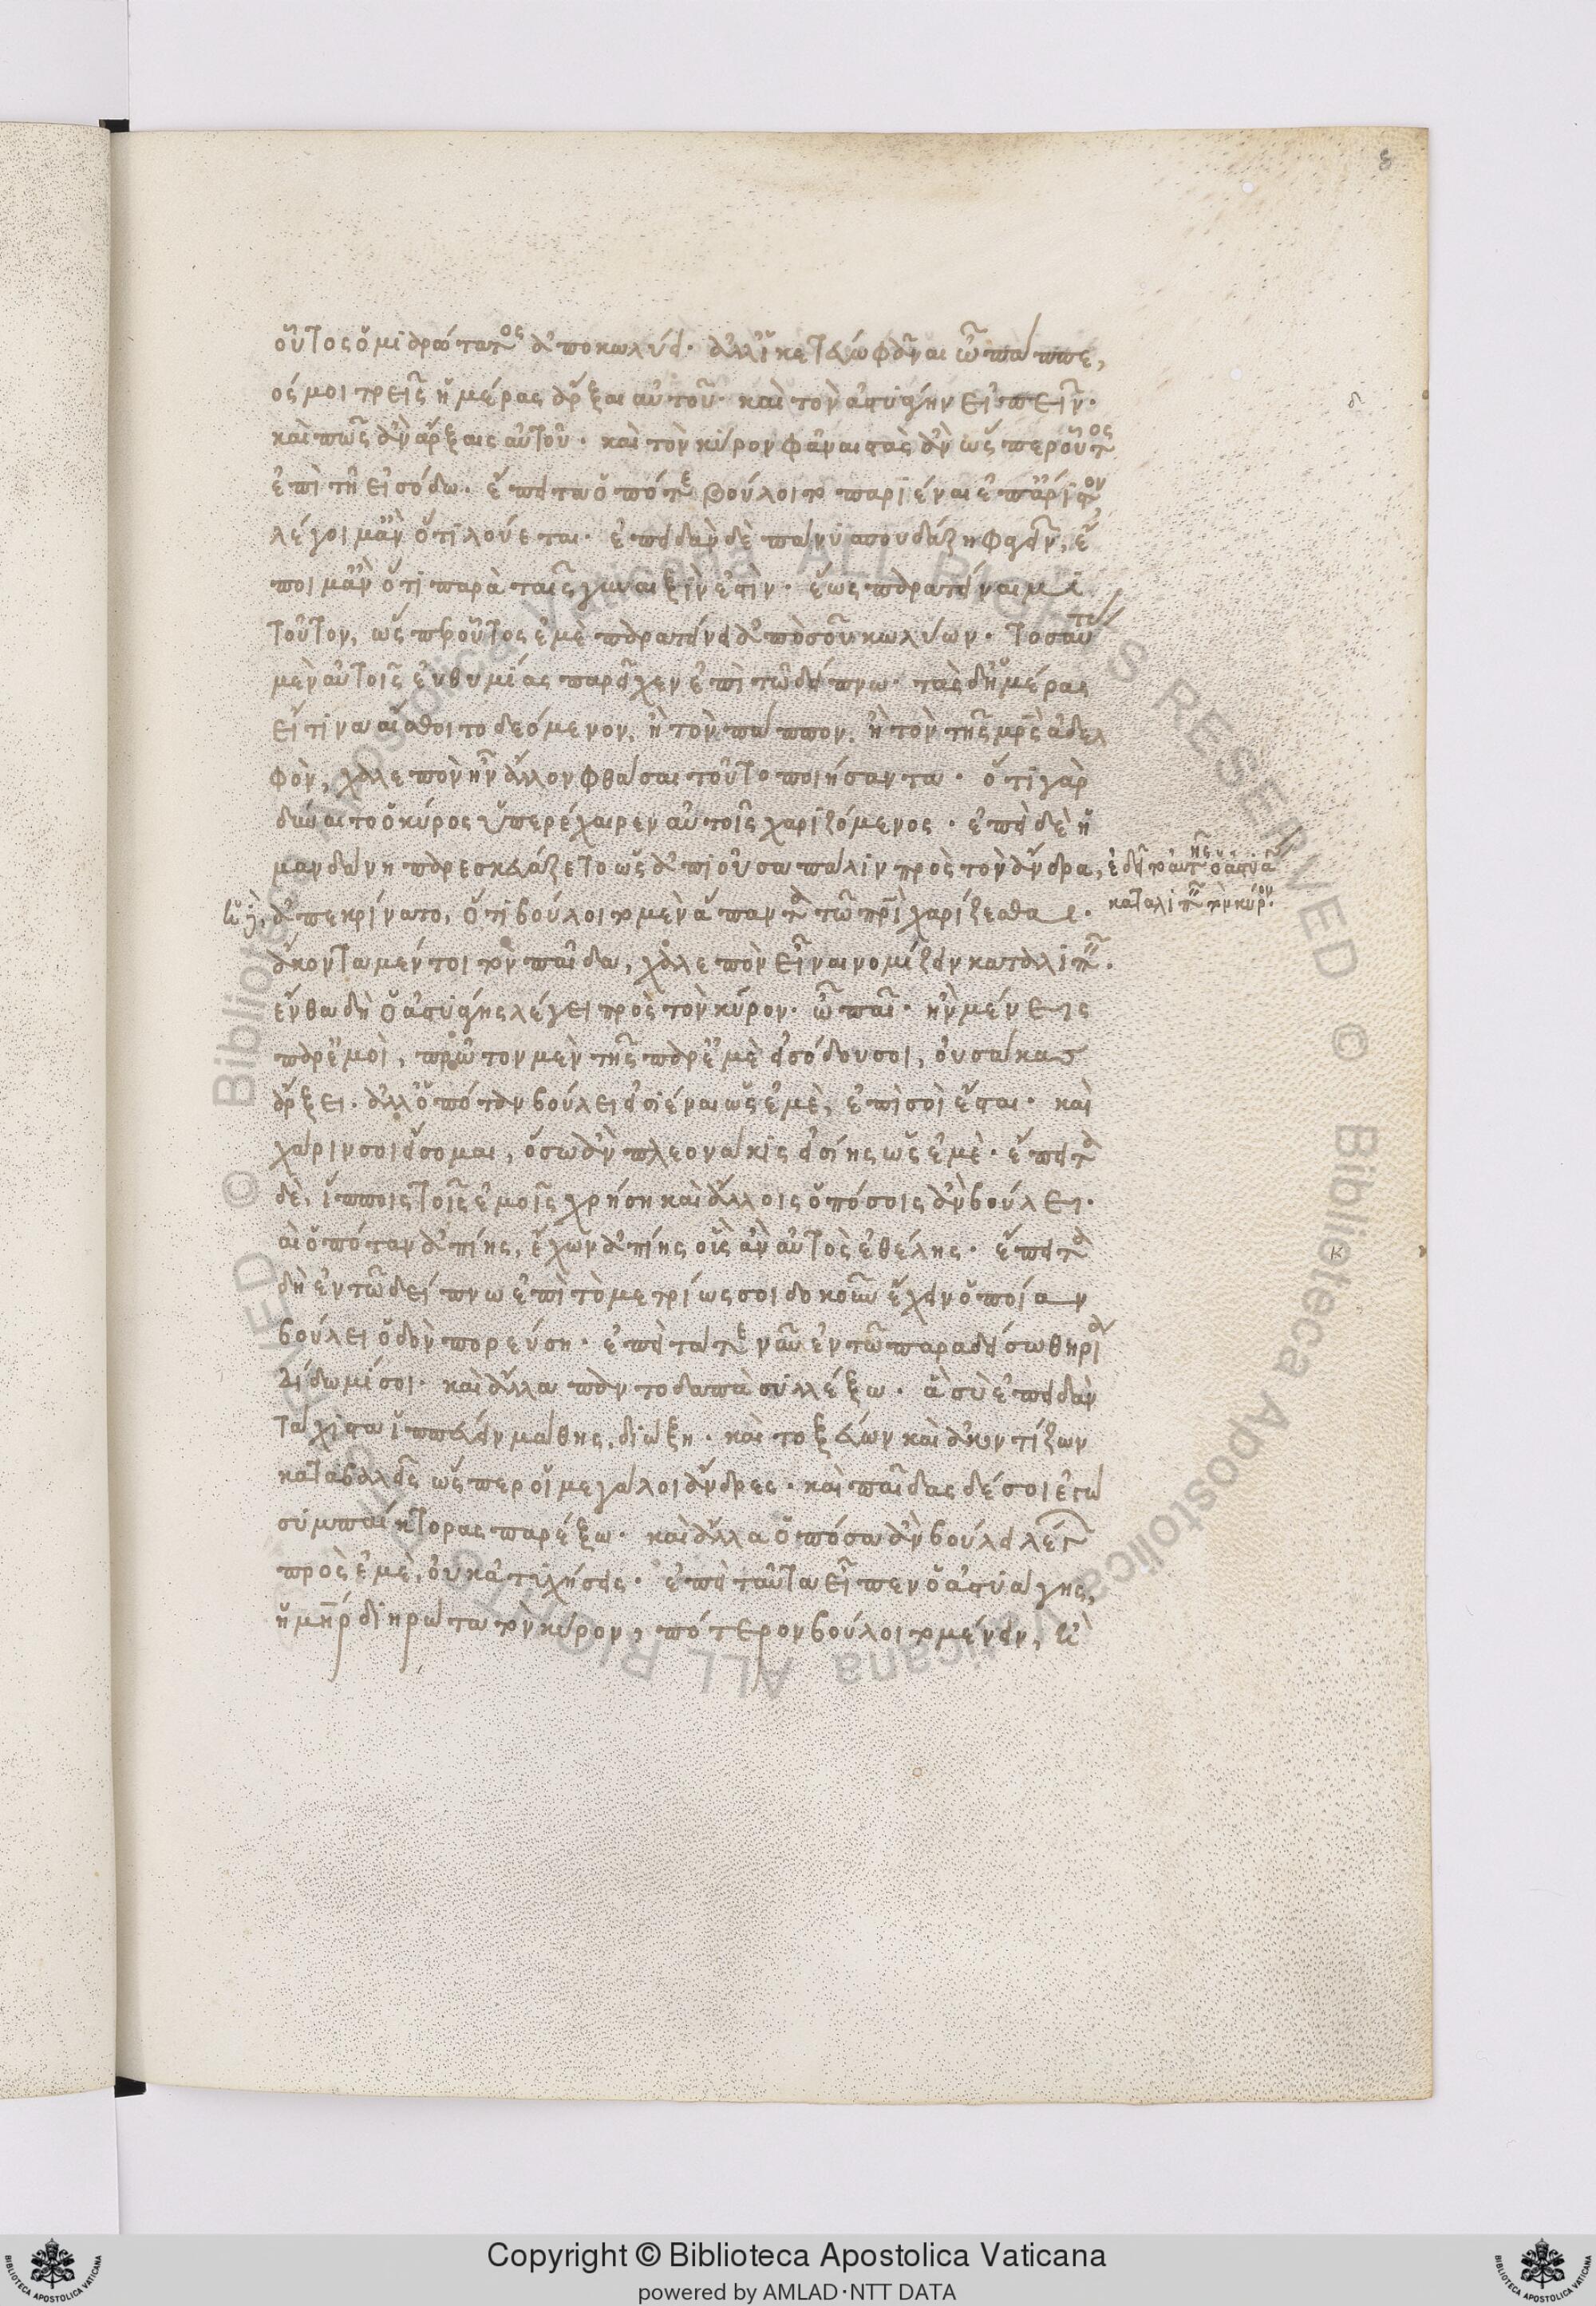 8
οὗτος ὁ μιαρώτατος ἀποκωλύει· ἀλλ' ἱκετεύω φάναι ὦ πάππε,
ός μοι τρεῖς ἡμέρας ἄρξαι αὐτοῦ· καὶ τὸν ἀστυάγην εἰπεῖν·
καὶ πῶς ἂν ἄρξαις αὐτοῦ· καὶ τὸν κύρον φάναι στὰς ἂν ὥσπερ οὗτος
ἐπὶ τῇ εἰσόδω· ἔπειτα ὁπότε βούλοιτο παριέναι ἐπ' ἄριστον
λέγοιμ' ἂν ὅτι λούεται· ἐπειδὰν δὲ πάνυ σπουδάζη φαγεῖν, εἴ
ποιμ' ἂν ὅτι παρὰ ταῖς γυναιξίν ἐστὶν· ἕως παρατείναιμι
τοῦτον, ὥσπερ οὗτος ἐμὲ παρατείνει ἀπὸ σοῦ κωλύων· τοσαύτας
μὲν αὐτοῖς εὐθυμίας παρεῖχεν ἐπὶ τῶ δείπνω· τὰς δ' ἡμέρας
εἴ τινα αἴσθοιτο δεόμενον, ἢ τὸν πάππον, ἢ τὸν τῆς μρς ἀδελ
φὸν, χαλεπὸν ἦν ἄλλον φθάσαι τοῦτο ποιήσαντα· ὅτι γὰρ
δύναιτο ὁ κύρος ὑπερέχαιρεν αὐτοῖς χαριζόμενος· ἐπεὶ δὲ ἡ
μανδάνη παρεσκευάζετο ὡς ἀπιοῦσα πάλιν πρὸς τὸν ἄνδρα, ἐδεῖτο αὐτῆς ὁ ἀστυά
καταλιπεῖν τὸν κύρον·
ἀπεκρίνατο, ὅτι βούλοιτο μὲν ἅπαντα τῶ πρὶ χαρίζεσθαι·
ἄκοντα μέντοι τὸν παῖδα, χαλεπὸν εἶναι νομίζειν καταλιπεῖν·
ἔνθα δὴ ὁ ἀστυάγης λέγει πρὸς τὸν κύρον· ὦ παῖ· ἢν μένεις
παρ' ἐμοὶ, πρῶτον μὲν τῆς παρ' ἐμὲ εἰσόδου σοι, οὐ σάκας
ἄρξει· ἀλλ' ὁπόταν βούλει εἰσιέναι ὡς ἐμὲ, ἐπὶ σοὶ ἔσται· καὶ
χάριν σοι εἴσομαι, ὅσω ἂν πλεονάκις εἰσίης ὡς ἐμὲ· ἔπειτα
δὲ, ἵπποις τοῖς ἐμοῖς χρήση καὶ ἄλλοις ὁπόσοις ἂν βούλει·
αι ὁπόταν ἀπίης, ἔχων ἀπίης οὓς ἂν αὐτὸς ἐθέλης· ἔπειτα
δὴ ἐν τῶ δείπνω ἐπὶ τὸ μετρίως σοι δοκοῦν ἔχειν ὁποίαν
βούλει ὁδὸν πορεύση· ἔπειτα τά τε νῦν ἐν τῶ παραδείσω θηρία
δίδωμί σοι· καὶ ἄλλα παντοδαπὰ συλλέξω· ἃ σὺ ἐπειδὰν
τάχιστα ἱππεύειν μάθης, διώξη· καὶ τοξεύων καὶ ἀκοντίζων
καταβαλεῖς ὥσπερ οἱ μεγάλοι ἄνδρες· καὶ παῖδας δέ σοι ἐγὼ
συμπαίκτορας παρέξω· καὶ ἄλλα ὁπόσα ἂν βούλει λέγων
πρὸς ἐμὲ, οὐκ ἀτυχήσεις· ἐπεὶ ταῦτα εἶπεν ὁ ἀστυάγης,
ἡ μηρ διηρώτα τὸν κύρον, πότερον βούλοιτο μένειν, ἢ